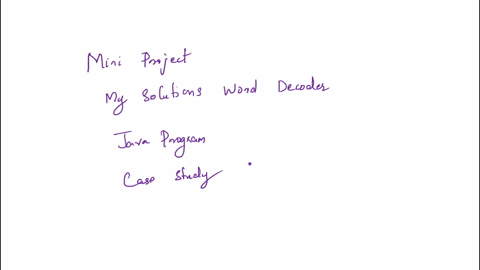 Mini Project
My Solutions Word Decoder
Java Program
Case Study